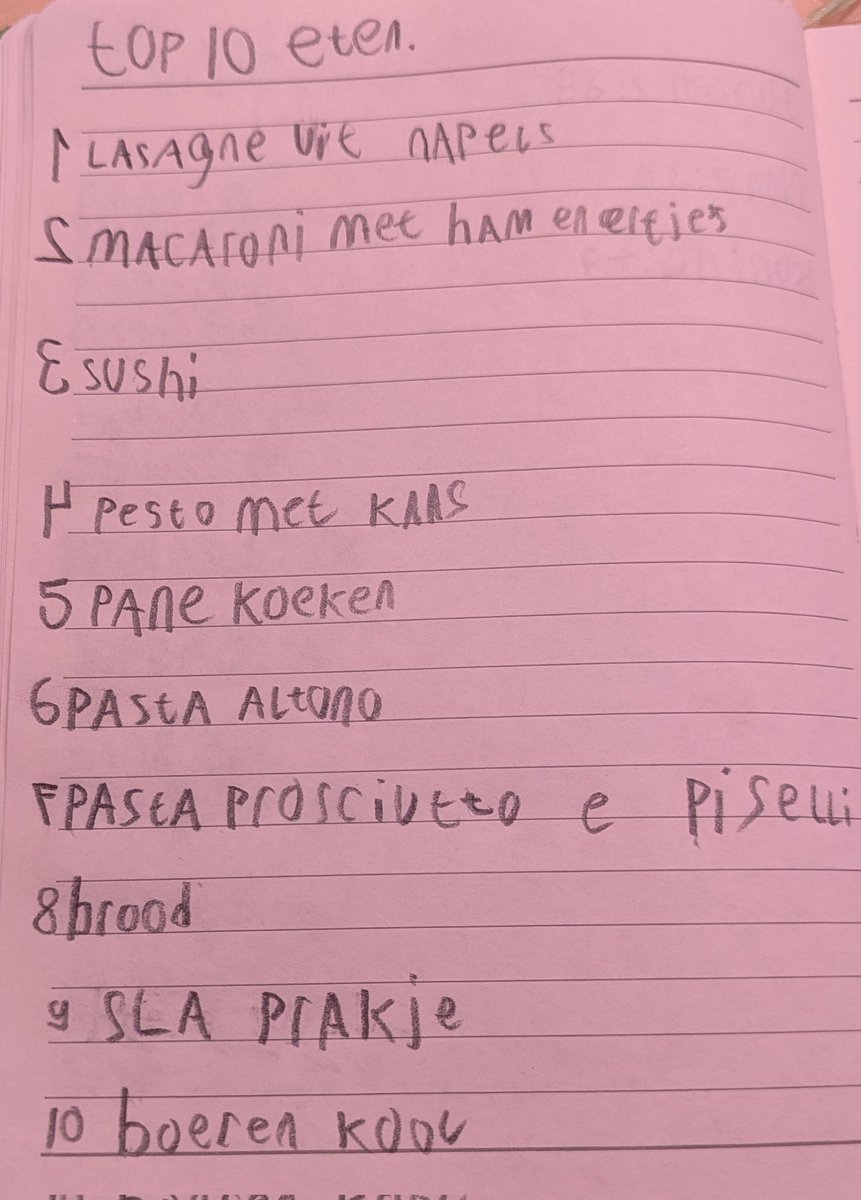 top 10 eten.
1 LASAgne uit nAPeLs
2 mACAroni met hAM en ertjes
3 sushi
4 Pesto met KAAS
5 PAne koeken
6 PAStA ALtono
7 PAStA Prosciutto e Piselli
8 brood
9 SLA PrAkje
10 boeren kool